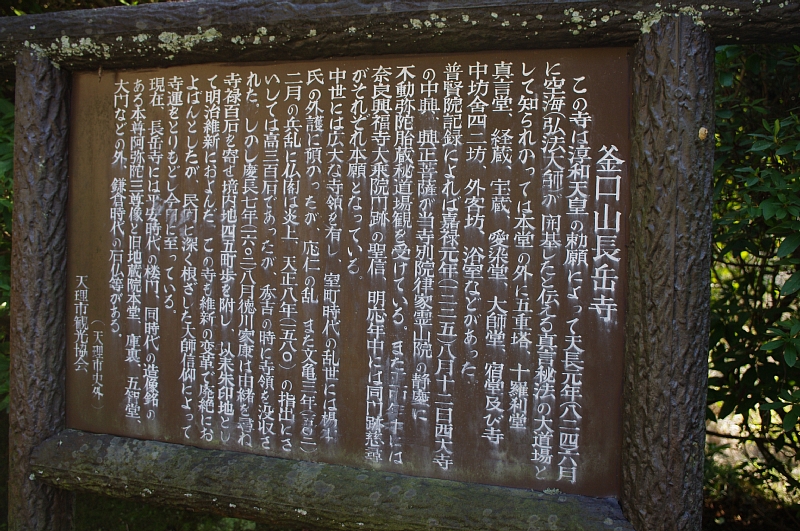 釜口山長岳寺
この寺は淳和天皇の勅願によって天長元年(八二四)六月
に空海(弘法大師)が開基したと伝える真言秘法の大道場と
して知られかつては本堂の外に五重塔、十羅利堂
真言堂、経蔵、宝蔵、愛染堂、大師堂、宿堂及び寺
中坊舎四二坊、外客坊、浴室などがあった。
普賢院記録によれば嘉禄元年(一二三五)八月十二日西大寺
の中興、興正菩薩が当寺別院律家霊山院の静慶に
不動弥陀胎蔵秘道場観を受けている。また
奈良興福寺大乗院門跡の聖信、明応年中には同門跡慈尋
がそれぞれ本願となっている。
中世には広大な寺領を有し、室町時代の乱世には
氏の外護に預かったが、応仁の乱、また文亀三年
二月の兵乱に仏閣は炎上、天正八年(一五八〇)の指出にさ
いしては高三百石であったが、秀吉の時に寺領を没収さ
れた。しかし慶長七年(一六〇二)八月徳川家康は由緒を尋ね
寺禄百石を寄せ境内地四五町歩を附し、以来朱印地とし
て明治維新におよんだ。この寺も維新の変革で廃絶にお
よばんとしたが、民間に深く根ざした大師信仰によって
寺運をとりもどし今日に至っている。
現在、長岳寺には平安時代の楼門、同時代の造像銘の
ある本尊阿弥陀三尊像と旧地蔵院本堂、庫裏、五智堂、
大門などの外、鎌倉時代の石仏等がある。
(天理市史外)
天理市観光協会